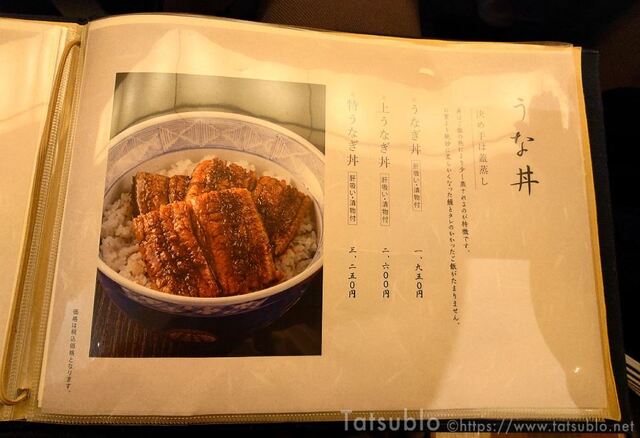 うな丼
決め手は蓋蒸し
うなぎ丼 肝吸い・漬物付 一、九五〇円
上うなぎ丼 肝吸い・漬物付 二、六〇〇円
特うなぎ丼 肝吸い・漬物付 三、二五〇円
価格は税込価格となります。
Tatsublo ©https://www.tatsublo.net